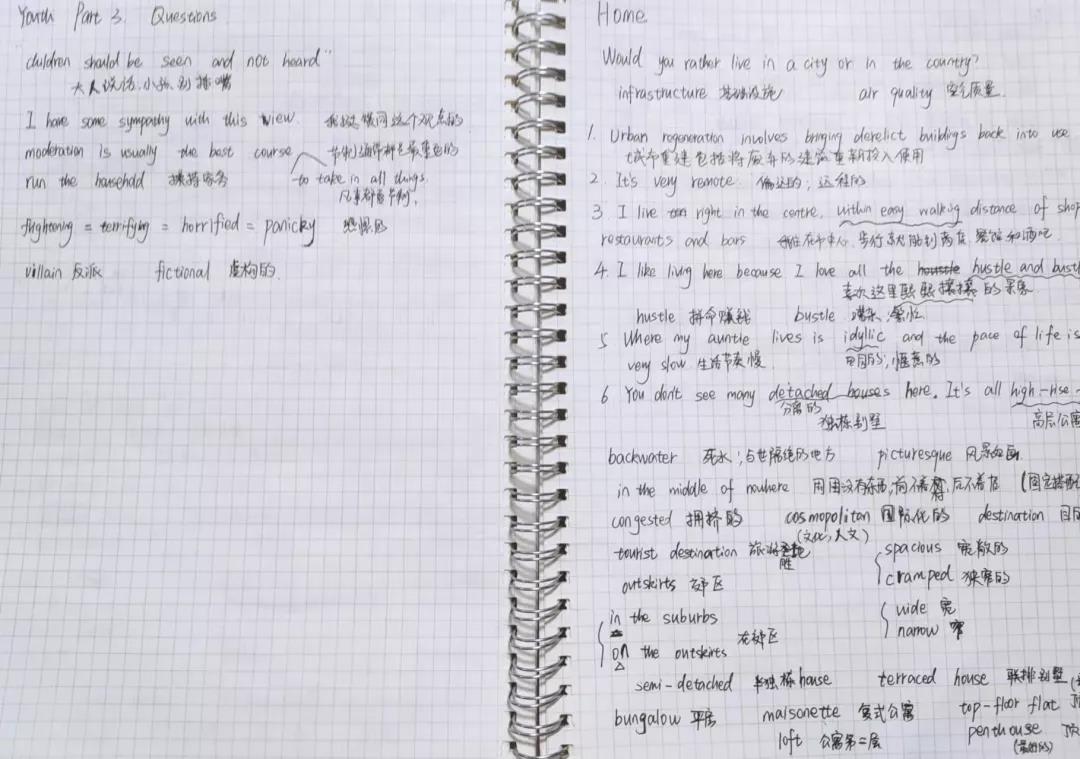 Youth Part 3. Questions
children should be seen and not heard"
大人说话,小孩别插嘴
I have some sympathy with this view. 我挺赞同这个观点的
moderation is usually the best course 节制通常都是最重要的
run the household 操持家务 to take in all things.
凡事都需节制,
frightening = terrifying = horrified = panicky 恐惧的
villain 反派 fictional 虚构的
Home
Would you rather live in a city or in the country?
infrastructure 基础设施 air quality 空气质量
1. Urban regeneration involves bringing derelict buildings back into use
城市重建包括将废弃的建筑重新投入使用
2. It's very remote 偏远的; 远程的
3. I live right in the centre, within easy walking distance of shop
restaurants and bars 我住在市中心, 步行就能到商店 餐馆和酒吧
4. I like living here because I love all the hustle and bustl
喜欢这里熙熙攘攘的景象
hustle 拼命赚钱 bustle 喧闹;繁忙
5 Where my auntie lives is idyllic and the pace of life is
very slow 生活节奏慢 田园的;惬意的
6 You don't see many detached houses here. It's all high-rise
分离的
独栋别墅 高层公寓
backwater 死水;与世隔绝的地方 picturesque 风景如画
in the middle of nowhere 周围没有东西,前不着村,后不着店 (固定搭配
congested 拥挤的 cosmopolitan 国际化的 destination 目的
(文化,人文)
tourist destination 旅游胜地 spacious 宽敞的
cramped 狭窄的
outskirts 郊区
in the suburbs wide 宽
narrow 窄
在郊区
on the outskirts
semi-detached 半独栋house terraced house 联排别墅
bungalow 平房 maisonette 复式公寓 top-floor flat 顶
loft 公寓第二层 penthouse 顶